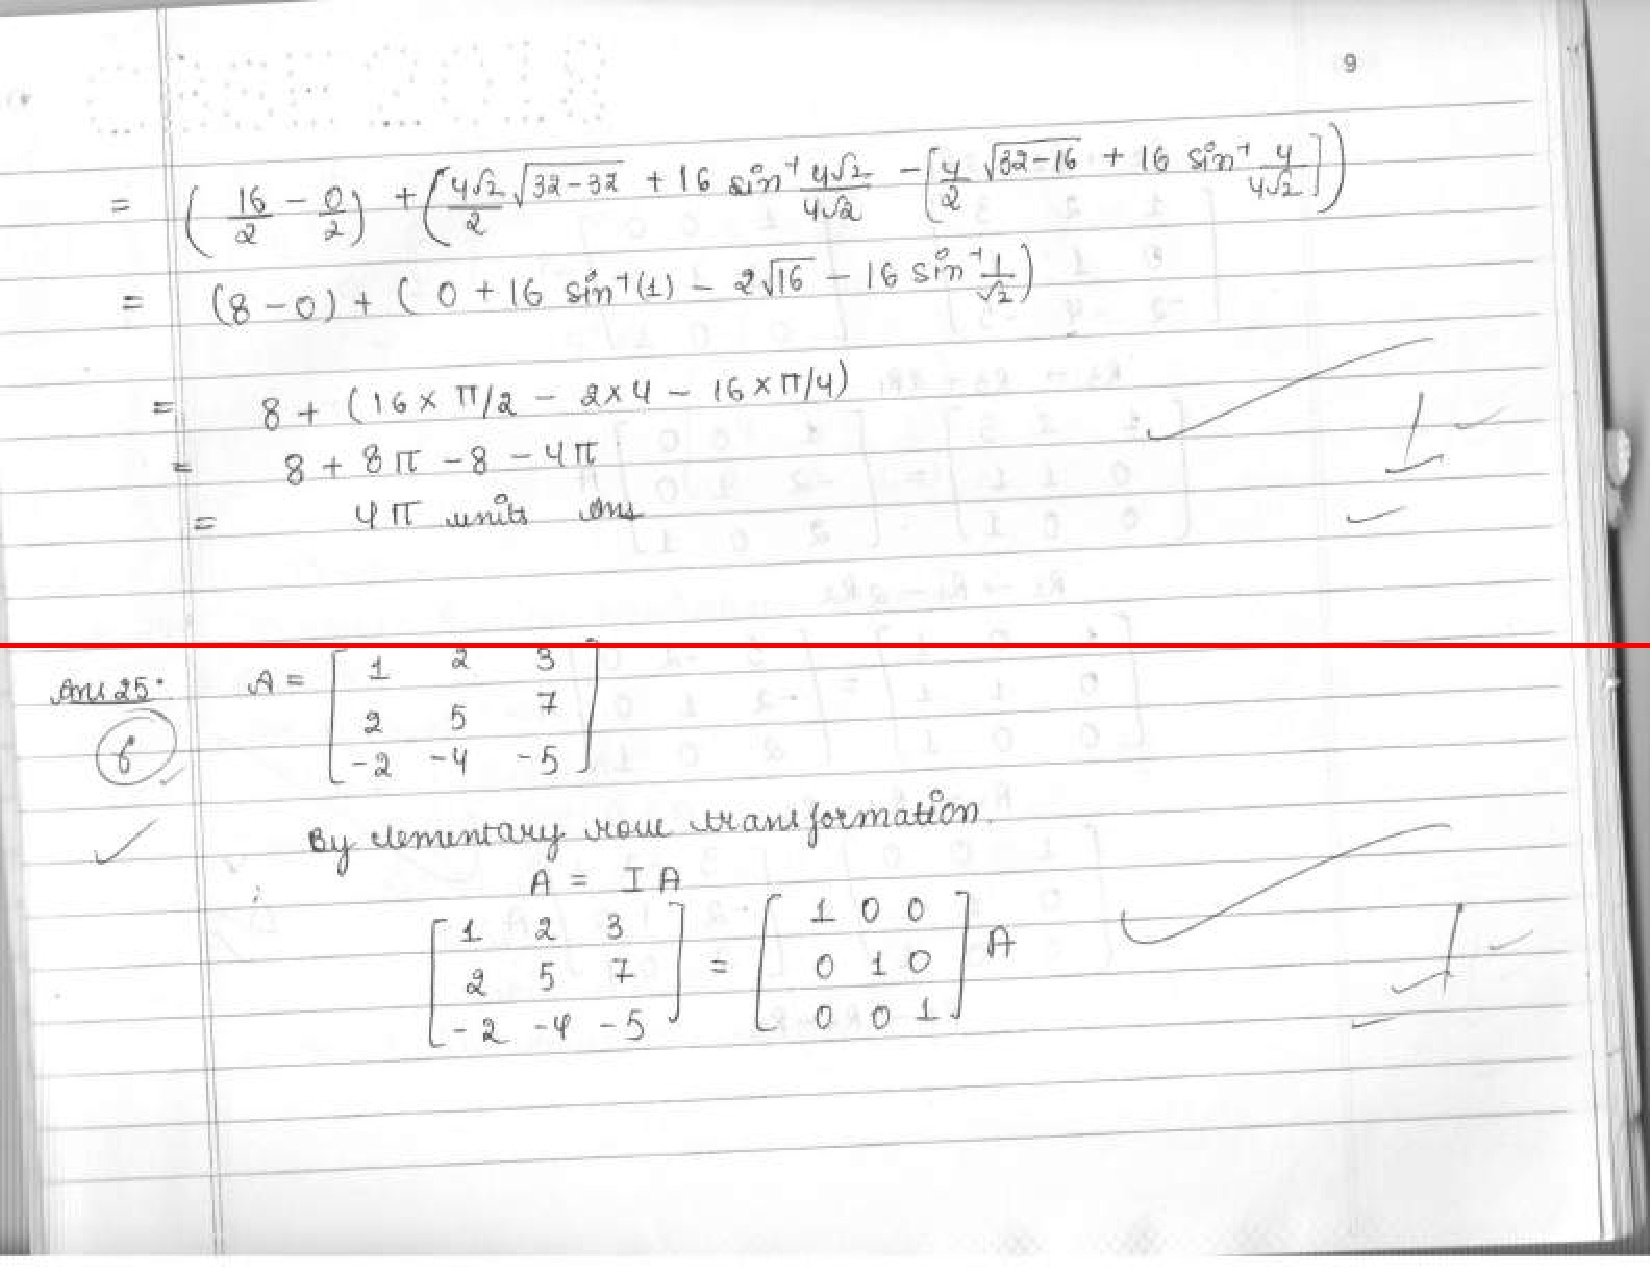 9
= (16/2 - 0/2) + (4√2/2 √32-32 + 16 sin⁻¹ 4√2/4√2 - [4/2 √32-16 + 16 sin⁻¹ 4/4√2])
= (8-0) + ( 0 + 16 sin⁻¹(1) - 2√16 - 16 sin⁻¹ 1/√2)
= 8 + (16 × π/2 - 2×4 - 16 × π/4)
= 8 + 8π - 8 - 4π
= 4π units Ans
Ans 25. A = [1 2 3
2 5 7
-2 -4 -5]
6
By elementary row transformation.
A = IA
[1 2 3
2 5 7
-2 -4 -5] = [1 0 0
0 1 0
0 0 1] A